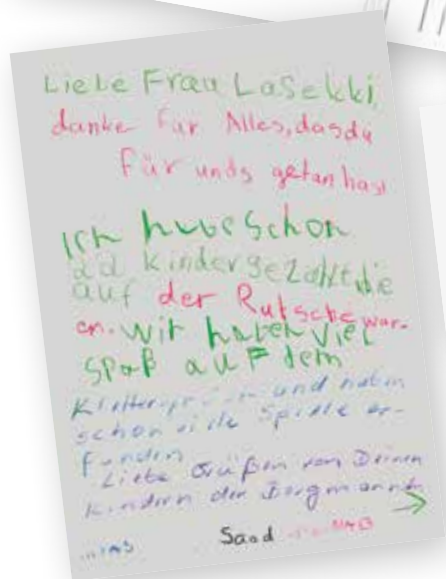 Liebe Frau Lasekki,
danke für Alles, dasdu
für unds getan hast
Ich habe schon
Kinder gezählt die
auf der Rutsche war-
en. Wir haben viel
Spaß auf dem
und habin
schon viele Spiele er-
funden
Liebe Grüßen von Deinen
Kindern der
Saad